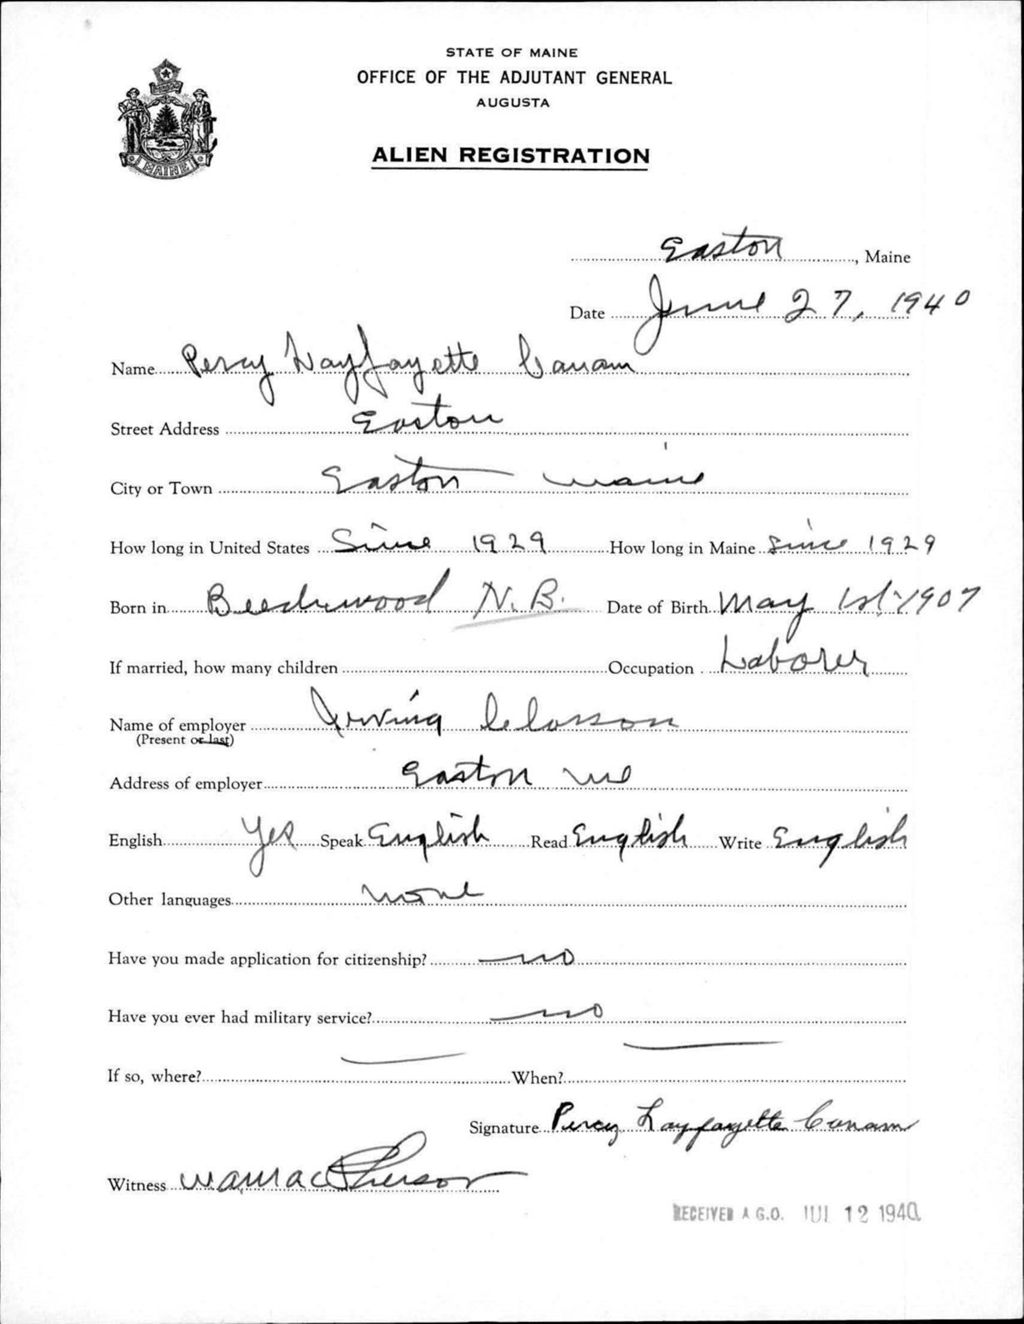 STATE OF MAINE
OFFICE OF THE ADJUTANT GENERAL
AUGUSTA
ALIEN REGISTRATION
MAINE
Easton, Maine
Date June 27, 1940
Name Percy Layfayette Canam
Street Address Easton
City or Town Easton Maine
How long in United States Since 1929 How long in Maine Since 1929
Born in Beechwood N.B. Date of Birth May 1st 1907
If married, how many children Occupation Laborer
Name of employer Irving Closson
(Present or last)
Address of employer Easton Me
English Yes Speak English Read English Write English
Other languages None
Have you made application for citizenship? no
Have you ever had military service? no
If so, where? — When? —
Signature Percy Layfayette Canam
Witness
RECEIVED A.G.O. JUL 12 1940